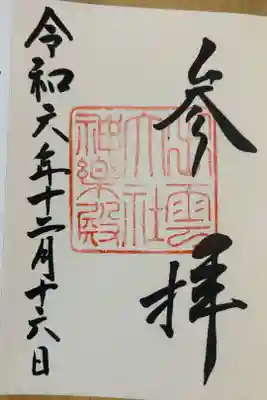 参拝
出雲大社神楽殿
令和六年十二月十六日